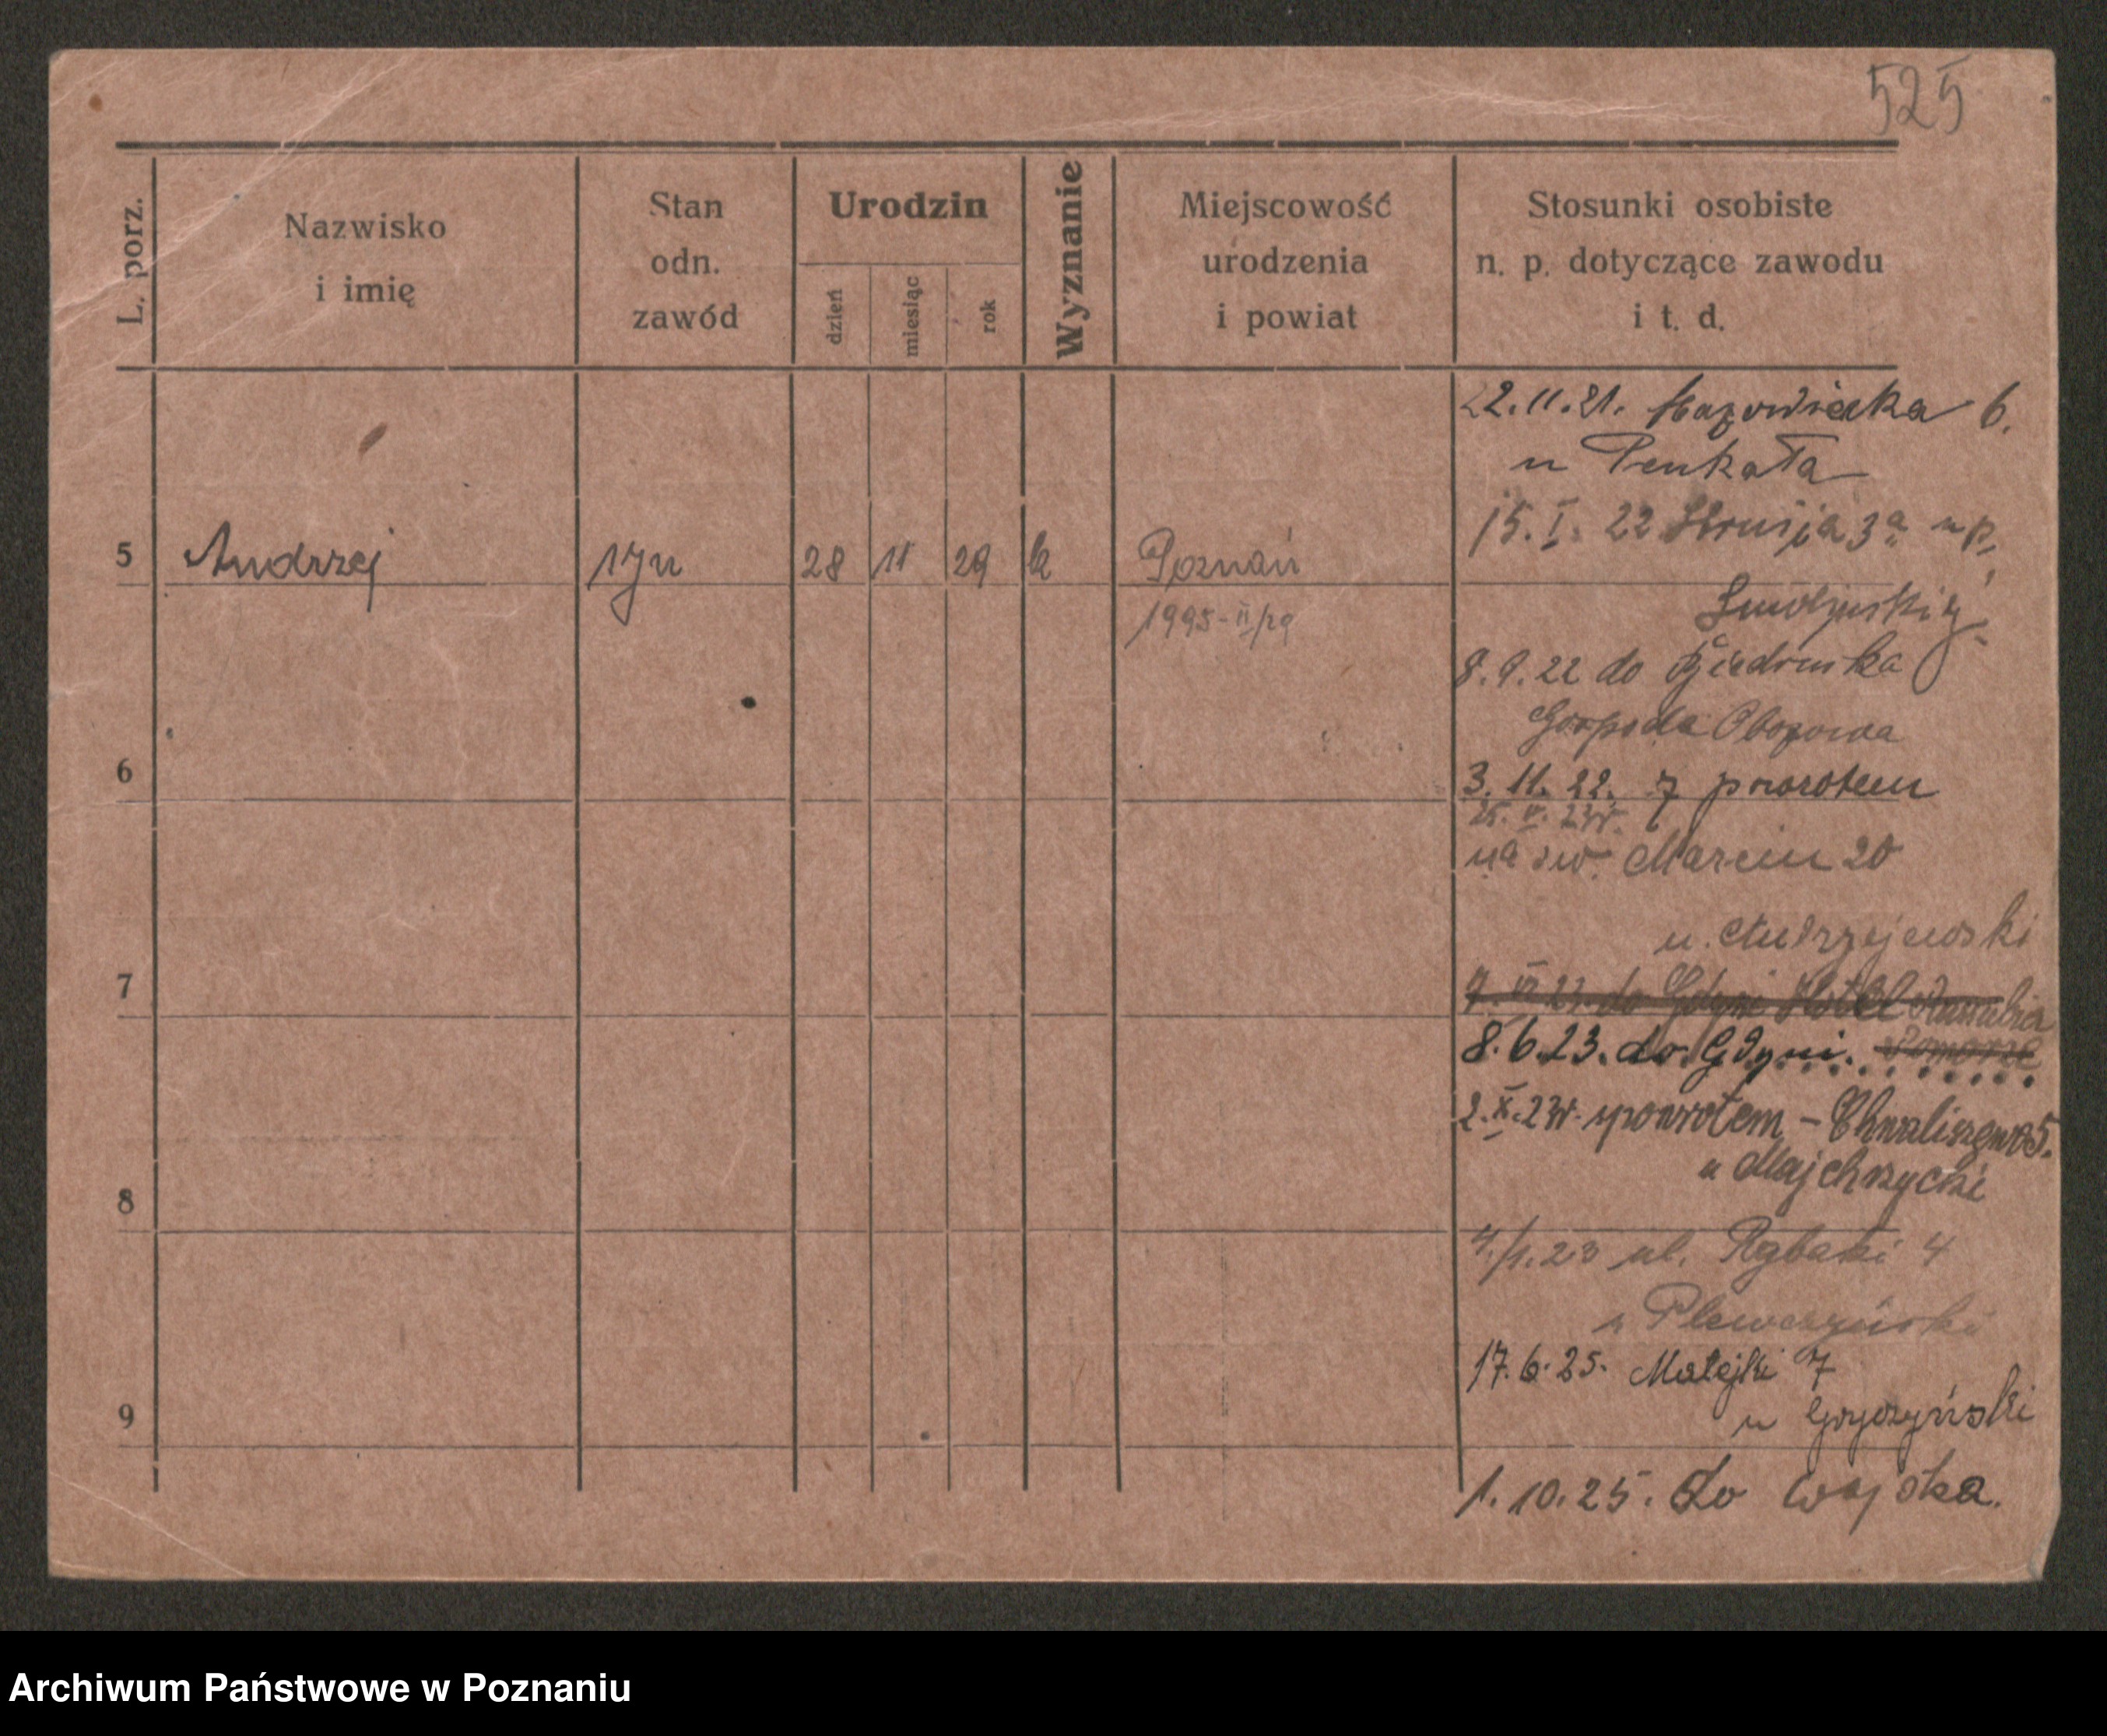 525
L. porz.
Nazwisko
i imię
Stan
odn.
zawód
Urodzin
dzień
miesiąc
rok
Wyznanie
Miejscowość
urodzenia
i powiat
Stosunki osobiste
n. p. dotyczące zawodu
i t. d.
22.11.21. Mazowiecka 6.
u Penkała
15. I. 22 Strusia 3a u p.
5 Andrzej syn 28 11 29 k Poznań
1995-II/29
8.9.22 do Biedruska
Gospoda Obozowa
3. 11. 22. z powrotem
6
na św. Marcin 20
u. Andrzejewski
7
8.6.23. do Gdyni.
2.X.23r. spowrotem - Chwaliszewo 5.
u Majchrzycki
8
4/1.23 ul. Rybaki 4
u Plewczyński
17.6.25. Matejki 7
u Gryczyński
9
1.10.25. do wojska.
Archiwum Państwowe w Poznaniu